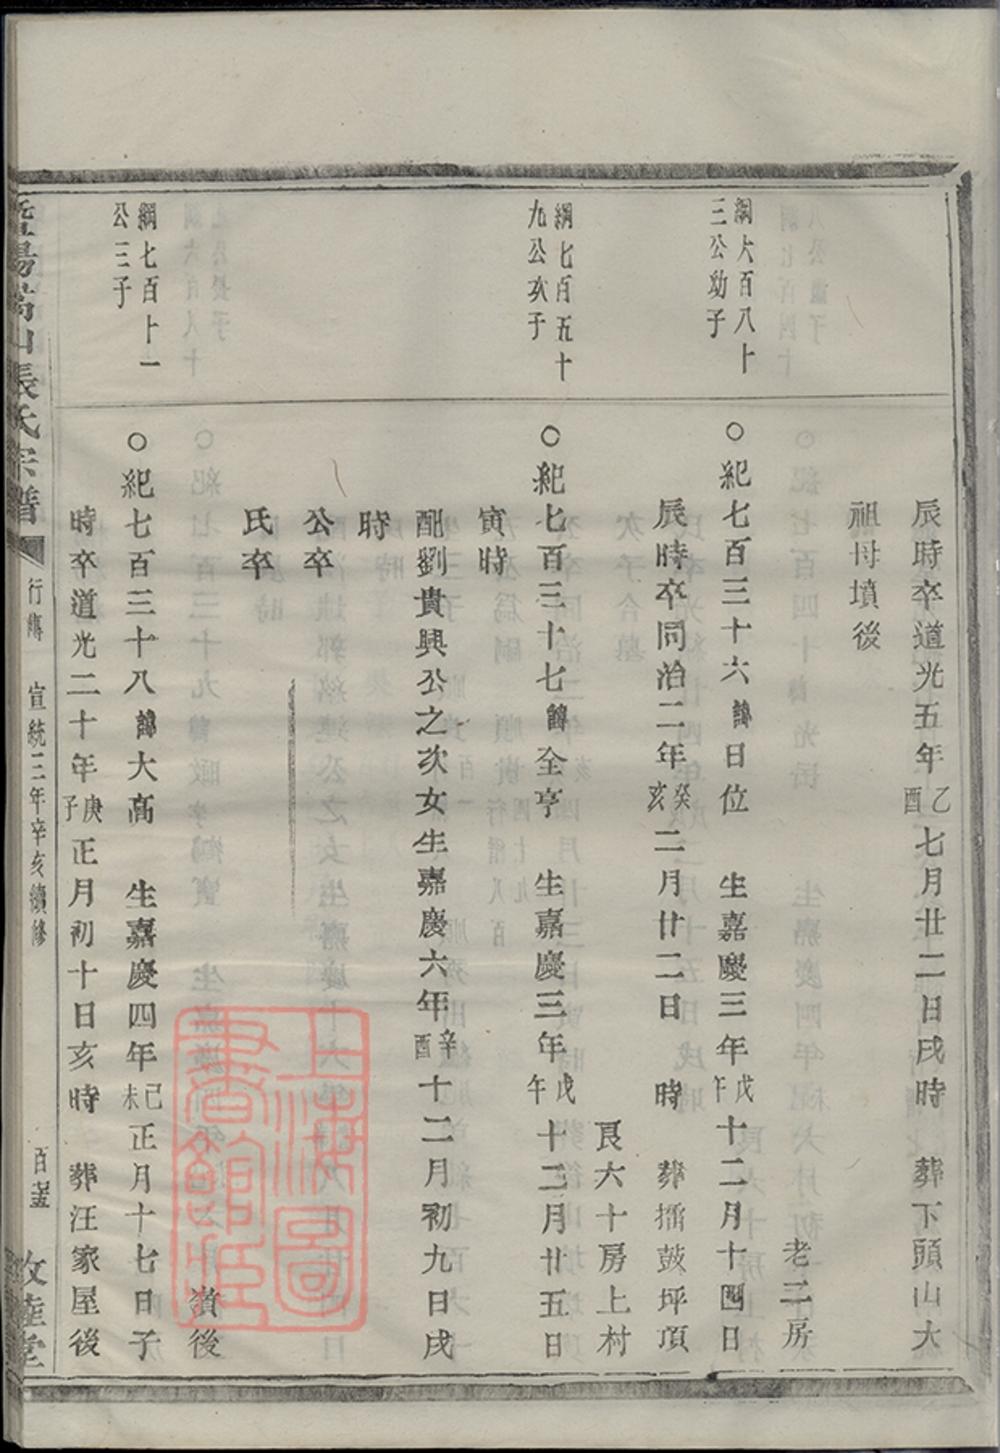 辰時卒道光五年乙酉七月廿二日戌時　葬下頭山大
祖母墳後
老三房
綱大百八十
三公幼子
○紀七百三十六諱日位　生嘉慶三年戊午十二月十四日
辰時卒同治二年癸亥二月廿二日　時　葬擂鼓坪頂
艮六十房上村
綱七百五十
九公次子
○紀七百三十七諱全亨　生嘉慶三年戊午十二月廿五日
寅時
配劉貴興公之次女生嘉慶六年辛酉十二月初九日戌
時
公卒
氏卒
嶺後
綱七百十一
公三子
○紀七百三十八諱大高　生嘉慶四年己未正月十七日子
時卒道光二十年庚子正月初十日亥時　葬汪家屋後
張氏宗譜
行傳　宣統三年辛亥續修
敦睦堂
上海圖書館藏